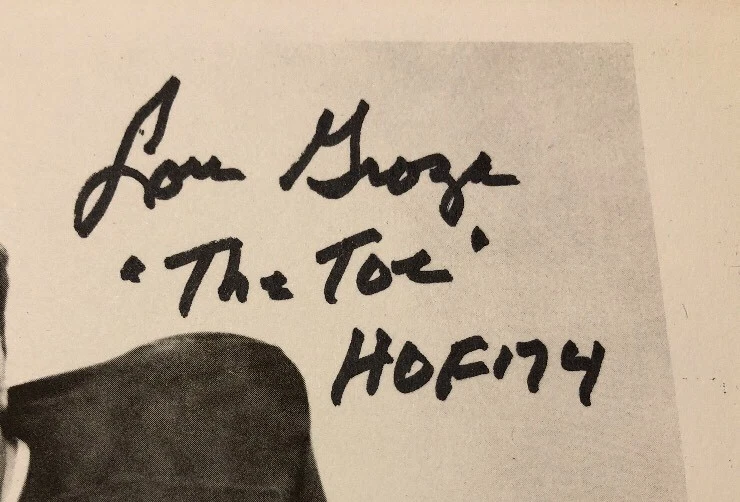 Lou Groza
"The Toe"
HOF '74